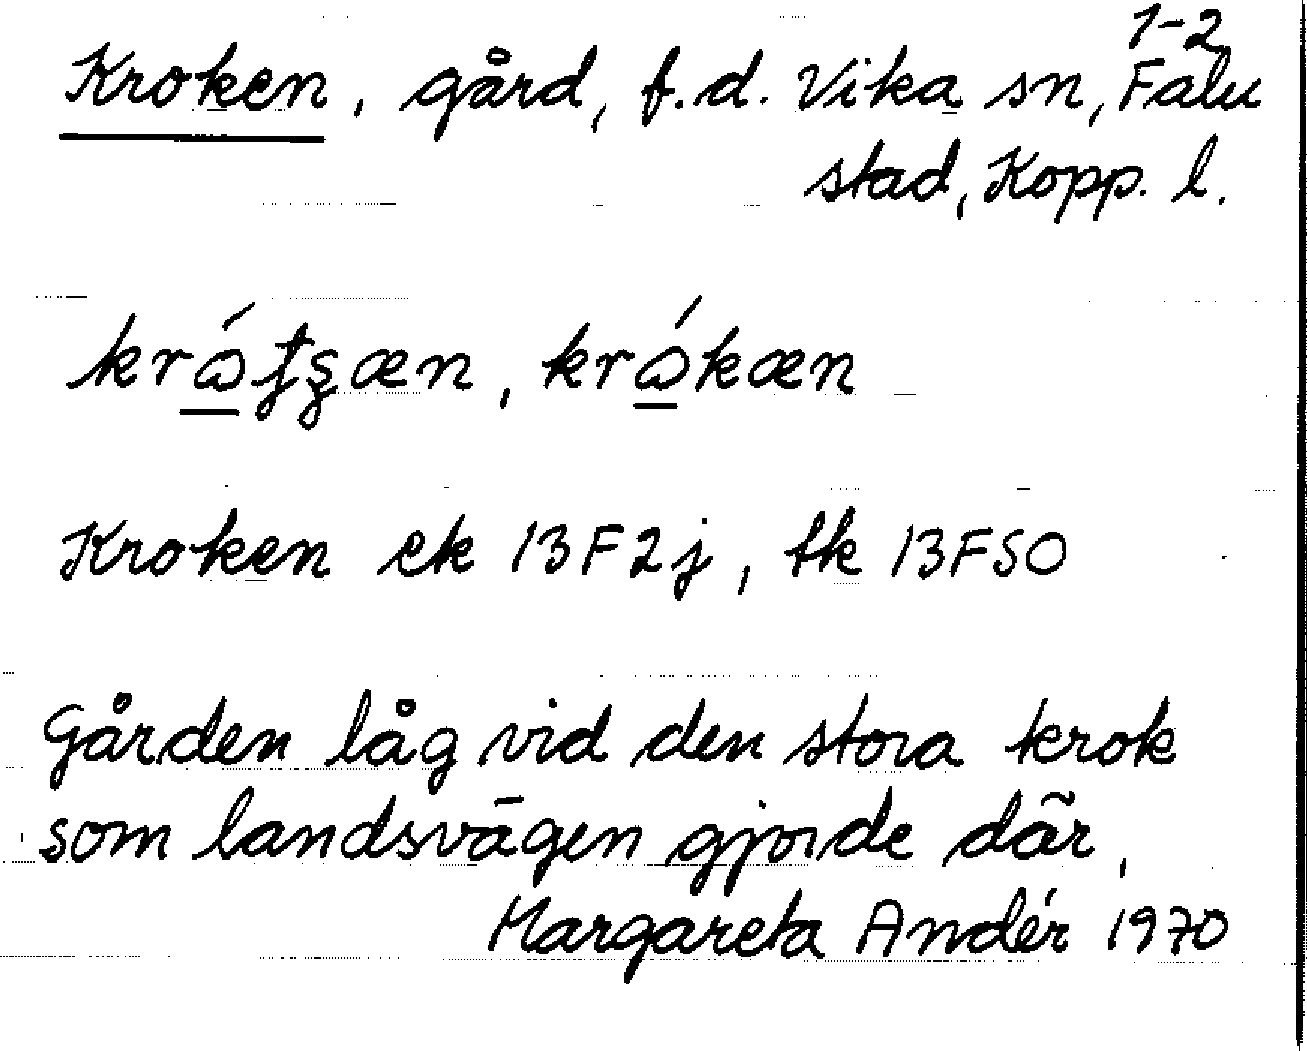 1-2
Kroken, gård, f.d. Vika sn, Falu
stad, Kopp. l.
krókæn
Kroken ek 13F2j, tk 13FSO
Gården låg vid den stora krok
som landsvägen gjorde där,
Margareta Andér 1970